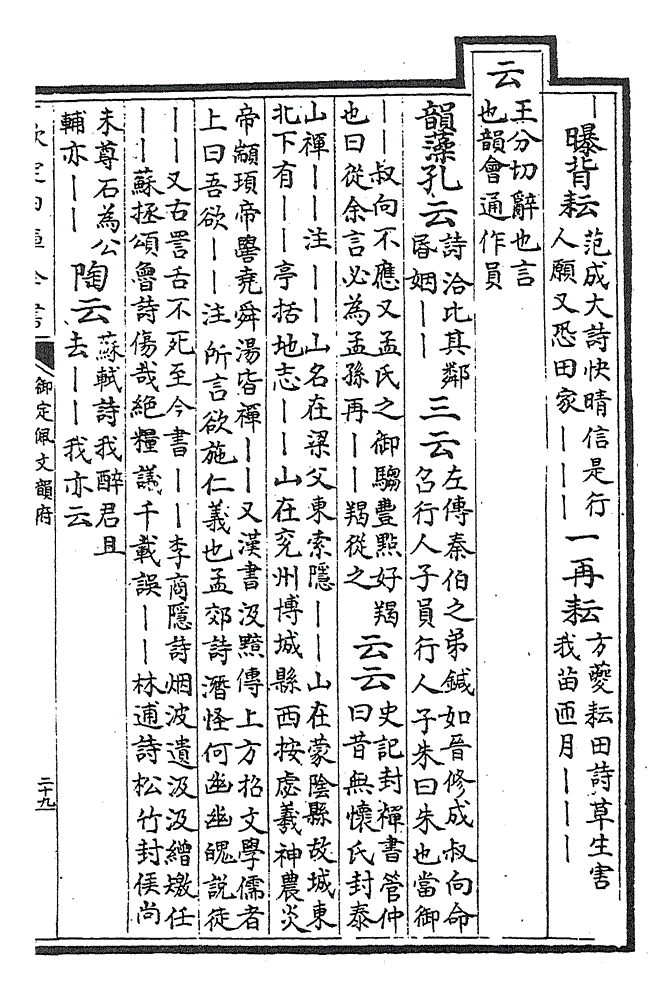 丨曝背耘 范成大詩快晴信是行
人願又恐田家丨丨丨
一再耘 方夔耘田詩草生害
我苗匝月丨丨丨
云 王分切辭也言
也韻會通作員
韻藻孔云 詩洽比其鄰
昬姻丨丨
三云 左傳秦伯之弟鍼如晉修成叔向命
召行人子員行人子朱曰朱也當御
丨丨叔向不應又孟氏之御騶豐點好羯
也曰從余言必為孟孫再丨丨羯從之
云云 史記封禪書管仲
曰昔無懷氏封泰
山禪丨丨注 丨丨山名在梁父東索隱丨丨山在蒙陰縣故城東
北下有丨丨亭括地志丨丨山在兖州博城縣西按虙羲神農炎
帝顓頊帝嚳堯舜湯皆禪丨丨又漢書汲黯傳上方招文學儒者
上曰吾欲丨丨注 所言欲施仁義也孟郊詩潛怪何幽幽魄說徒
丨丨又古詈舌不死至今書丨丨李商隱詩烟波遺汲汲繒繳任
丨丨蘇拯頌魯詩傷哉絕糧議千載誤丨丨林逋詩松竹封侯尚
未尊石為公
輔亦丨丨
陶云 蘇軾詩我醉君且
去丨丨我亦云
欽定四庫全書
御定佩文韻府
二十九